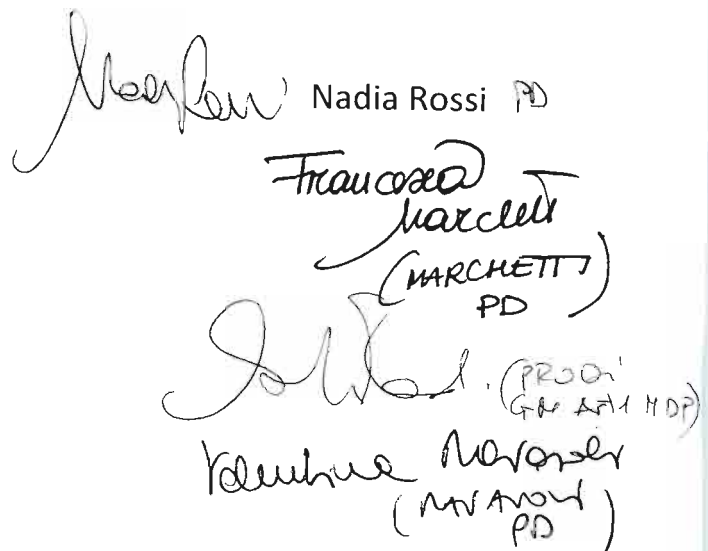 Nadia Rossi PD
Francesca
Marchetti
(MARCHETTI
PD)
(PRODI
MDP)
Valentina Ravaioli
(RAVAIOLI
PD)